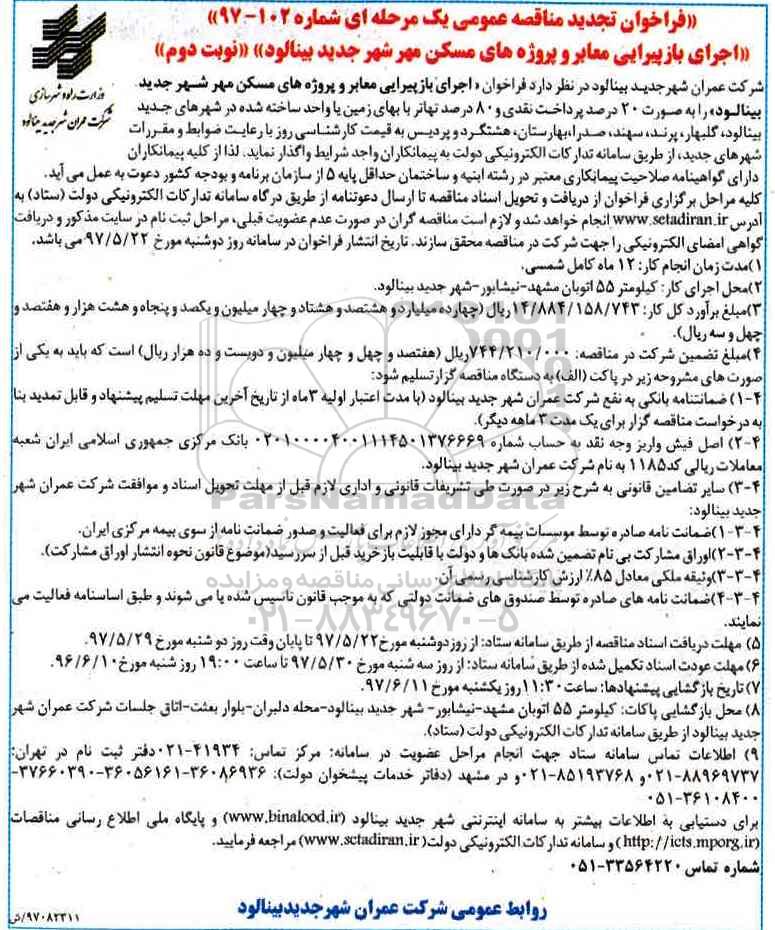 «فراخوان تجدید مناقصه عمومی یک مرحله ای شماره ۱۰۲-۹۷»
«اجرای بازپیرایی معابر و پروژه های مسکن مهر شهر جدید بینالود» «نوبت دوم»
وزارت راه و شهرسازی
شرکت عمران شهر جدید بینالود
شرکت عمران شهرجدید بینالود در نظر دارد فراخوان «اجرای بازپیرایی معابر و پروژه های مسکن مهر شهر جدید
بینالود» را به صورت ۲۰ درصد پرداخت نقدی و ۸۰ درصد تهاتر با بهای زمین یا واحد ساخته شده در شهرهای جدید
بینالود، گلبهار، پرند، سهند، صدرا، بهارستان، هشتگرد و پردیس به قیمت کارشناسی روز با رعایت ضوابط و مقررات
شهرهای جدید، از طریق سامانه تدارکات الکترونیکی دولت به پیمانکاران واجد شرایط واگذار نماید. لذا از کلیه پیمانکاران
دارای گواهینامه صلاحیت پیمانکاری معتبر در رشته ابنیه و ساختمان حداقل پایه ۵ از سازمان برنامه و بودجه کشور دعوت به عمل می آید.
کلیه مراحل برگزاری فراخوان از دریافت و تحویل اسناد مناقصه تا ارسال دعوتنامه از طریق درگاه سامانه تدارکات الکترونیکی دولت (ستاد) به
آدرس www.setadiran.ir انجام خواهد شد و لازم است مناقصه گران در صورت عدم عضویت قبلی، مراحل ثبت نام در سایت مذکور و دریافت
گواهی امضای الکترونیکی را جهت شرکت در مناقصه محقق سازند. تاریخ انتشار فراخوان در سامانه روز دوشنبه مورخ ۹۷/۵/۲۲ می باشد.
۱)مدت زمان انجام کار: ۱۲ ماه کامل شمسی.
۲)محل اجرای کار: کیلومتر ۵۵ اتوبان مشهد-نیشابور-شهر جدید بینالود.
۳)مبلغ برآورد کل کار: ۱۴/۸۸۴/۱۵۸/۷۴۳ریال (چهارده میلیارد و هشتصد و هشتاد و چهار میلیون و یکصد و پنجاه و هشت هزار و هفتصد و
چهل و سه ریال).
۴)مبلغ تضمین شرکت در مناقصه: ۷۴۴/۲۱۰/۰۰۰ریال (هفتصد و چهل و چهار میلیون و دویست و ده هزار ریال) است که باید به یکی از
صورت های مشروحه زیر در پاکت (الف) به دستگاه مناقصه گزار تسلیم شود:
۴-۱) ضمانتنامه بانکی به نفع شرکت عمران شهر جدید بینالود (با مدت اعتبار اولیه ۳ماه از تاریخ آخرین مهلت تسلیم پیشنهاد و قابل تمدید بنا
به درخواست مناقصه گزار برای یک مدت ۳ ماهه دیگر).
۴-۲) اصل فیش واریز وجه نقد به حساب شماره ۰۲۰۱۰۰۰۰۴۰۰۱۱۱۴۵۰۱۳۷۶۶۶۹ بانک مرکزی جمهوری اسلامی ایران شعبه
معاملات ریالی کد۱۱۸۵ به نام شرکت عمران شهر جدید بینالود.
۴-۳) سایر تضامین قانونی به شرح زیر در صورت طی تشریفات قانونی و اداری لازم قبل از مهلت تحویل اسناد و موافقت شرکت عمران شهر
جدید بینالود:
۴-۳-۱)ضمانت نامه صادره توسط موسسات بیمه گر دارای مجوز لازم برای فعالیت و صدور ضمانت نامه از سوی بیمه مرکزی ایران.
۴-۳-۲)اوراق مشارکت بی نام تضمین شده بانک ها و دولت با قابلیت بازخرید قبل از سررسید(موضوع قانون نحوه انتشار اوراق مشارکت).
۴-۳-۳)وثیقه ملکی معادل ۸۵٪ ارزش کارشناسی رسمی آن.
۴-۳-۴)ضمانت نامه های صادره توسط صندوق های ضمانت دولتی که به موجب قانون تاسیس شده یا می شوند و طبق اساسنامه فعالیت می
نمایند.
۵) مهلت دریافت اسناد مناقصه از طریق سامانه ستاد: از روز دوشنبه مورخ۹۷/۵/۲۲ تا پایان وقت روز دو شنبه مورخ ۹۷/۵/۲۹.
۶) مهلت عودت اسناد تکمیل شده از طریق سامانه ستاد: از روز سه شنبه مورخ ۹۷/۵/۳۰ تا ساعت ۱۹:۰۰ روز شنبه مورخ۹۶/۶/۱۰.
۷) تاریخ بازگشایی پیشنهادها: ساعت ۱۱:۳۰ روز یکشنبه مورخ ۹۷/۶/۱۱.
۸) محل بازگشایی پاکات: کیلومتر ۵۵ اتوبان مشهد-نیشابور- شهر جدید بینالود-محله دلبران-بلوار بعثت-اتاق جلسات شرکت عمران شهر
جدید بینالود از طریق سامانه تدارکات الکترونیکی دولت (ستاد).
۹) اطلاعات تماس سامانه ستاد جهت انجام مراحل عضویت در سامانه: مرکز تماس: ۴۱۹۳۴-۰۲۱دفتر ثبت نام در تهران:
۸۸۹۶۹۷۳۷-۰۲۱و ۸۵۱۹۳۷۶۸-۰۲۱و در مشهد (دفاتر خدمات پیشخوان دولت): ۳۶۰۸۶۹۳۶-۳۶۰۵۶۱۶۱-۳۷۶۶۰۳۹۰-
۳۶۱۰۸۴۰۰-۰۵۱
برای دستیابی به اطلاعات بیشتر به سامانه اینترنتی شهر جدید بینالود (www.binalood.ir) و پایگاه ملی اطلاع رسانی مناقصات
(http://iets.mporg.ir) و سامانه تدارکات الکترونیکی دولت (www.setadiran.ir) مراجعه فرمایید.
شماره تماس ۳۳۵۶۴۲۲۰-۰۵۱
روابط عمومی شرکت عمران شهرجدیدبینالود
۹۷۰۸۲۳۱۱/ش
ParsNamadData
پایگاه اطلاع رسانی مناقصه و مزایده
۰۲۱-۸۸۳۴۹۶۷۰-۵